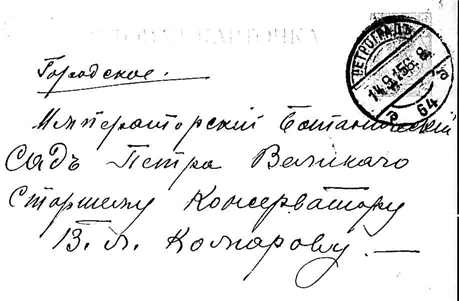 КАРТОЧКА
ПЕТРОГРАДЪ
14.9.15
64
Городское.
Императорскій Ботаническій
Садъ Петра Великаго
Старшему Консерватору
В. Л. Комарову. —